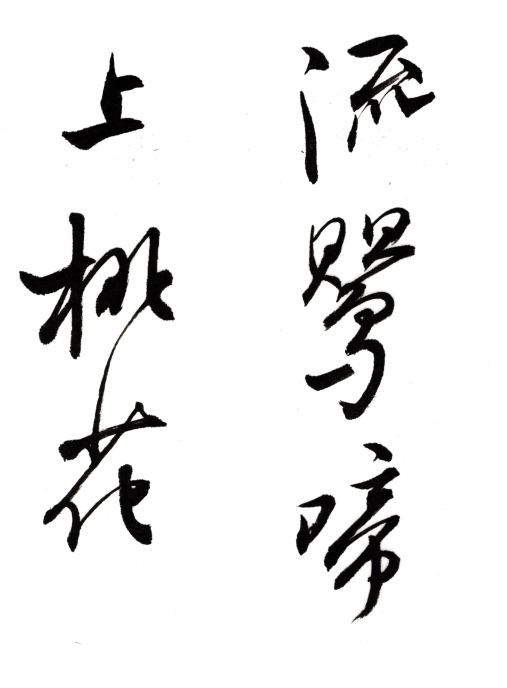 流鸎啼
上桃花